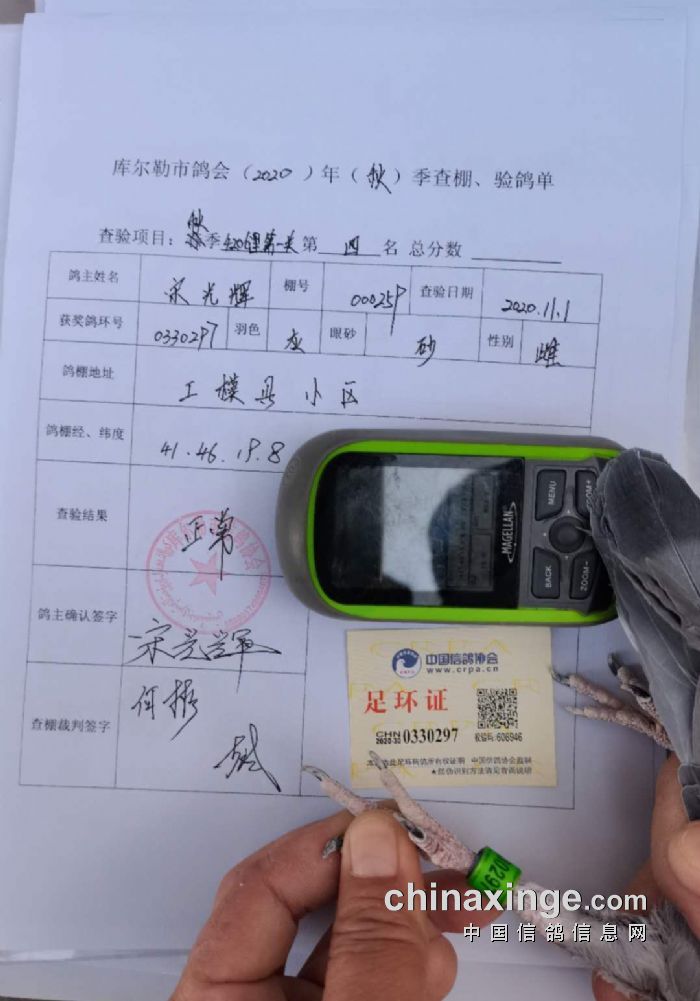 库尔勒市鸽会（2020）年（秋）季查棚、验鸽单
查验项目：秋季420锂第一关 第 四 名 总分数
鸽主姓名 宋光辉 棚号 000259 查验日期 2020.11.1
获奖鸽环号 0330297 羽色 灰 眼砂 砂 性别 雌
鸽棚地址 工模具小区
鸽棚经、纬度 41.46.19.8
查验结果 正常
鸽主确认签字 宋光辉
查棚裁判签字 何振
MAGELLAN
MENU
ZOOM+
BACK
ZOOM-
中国信鸽协会
www.crpa.cn
足环证
CHN
2020-30 0330297
校验码:606946
中国信鸽协会监制
chinaxinge.com
中国信鸽信息网